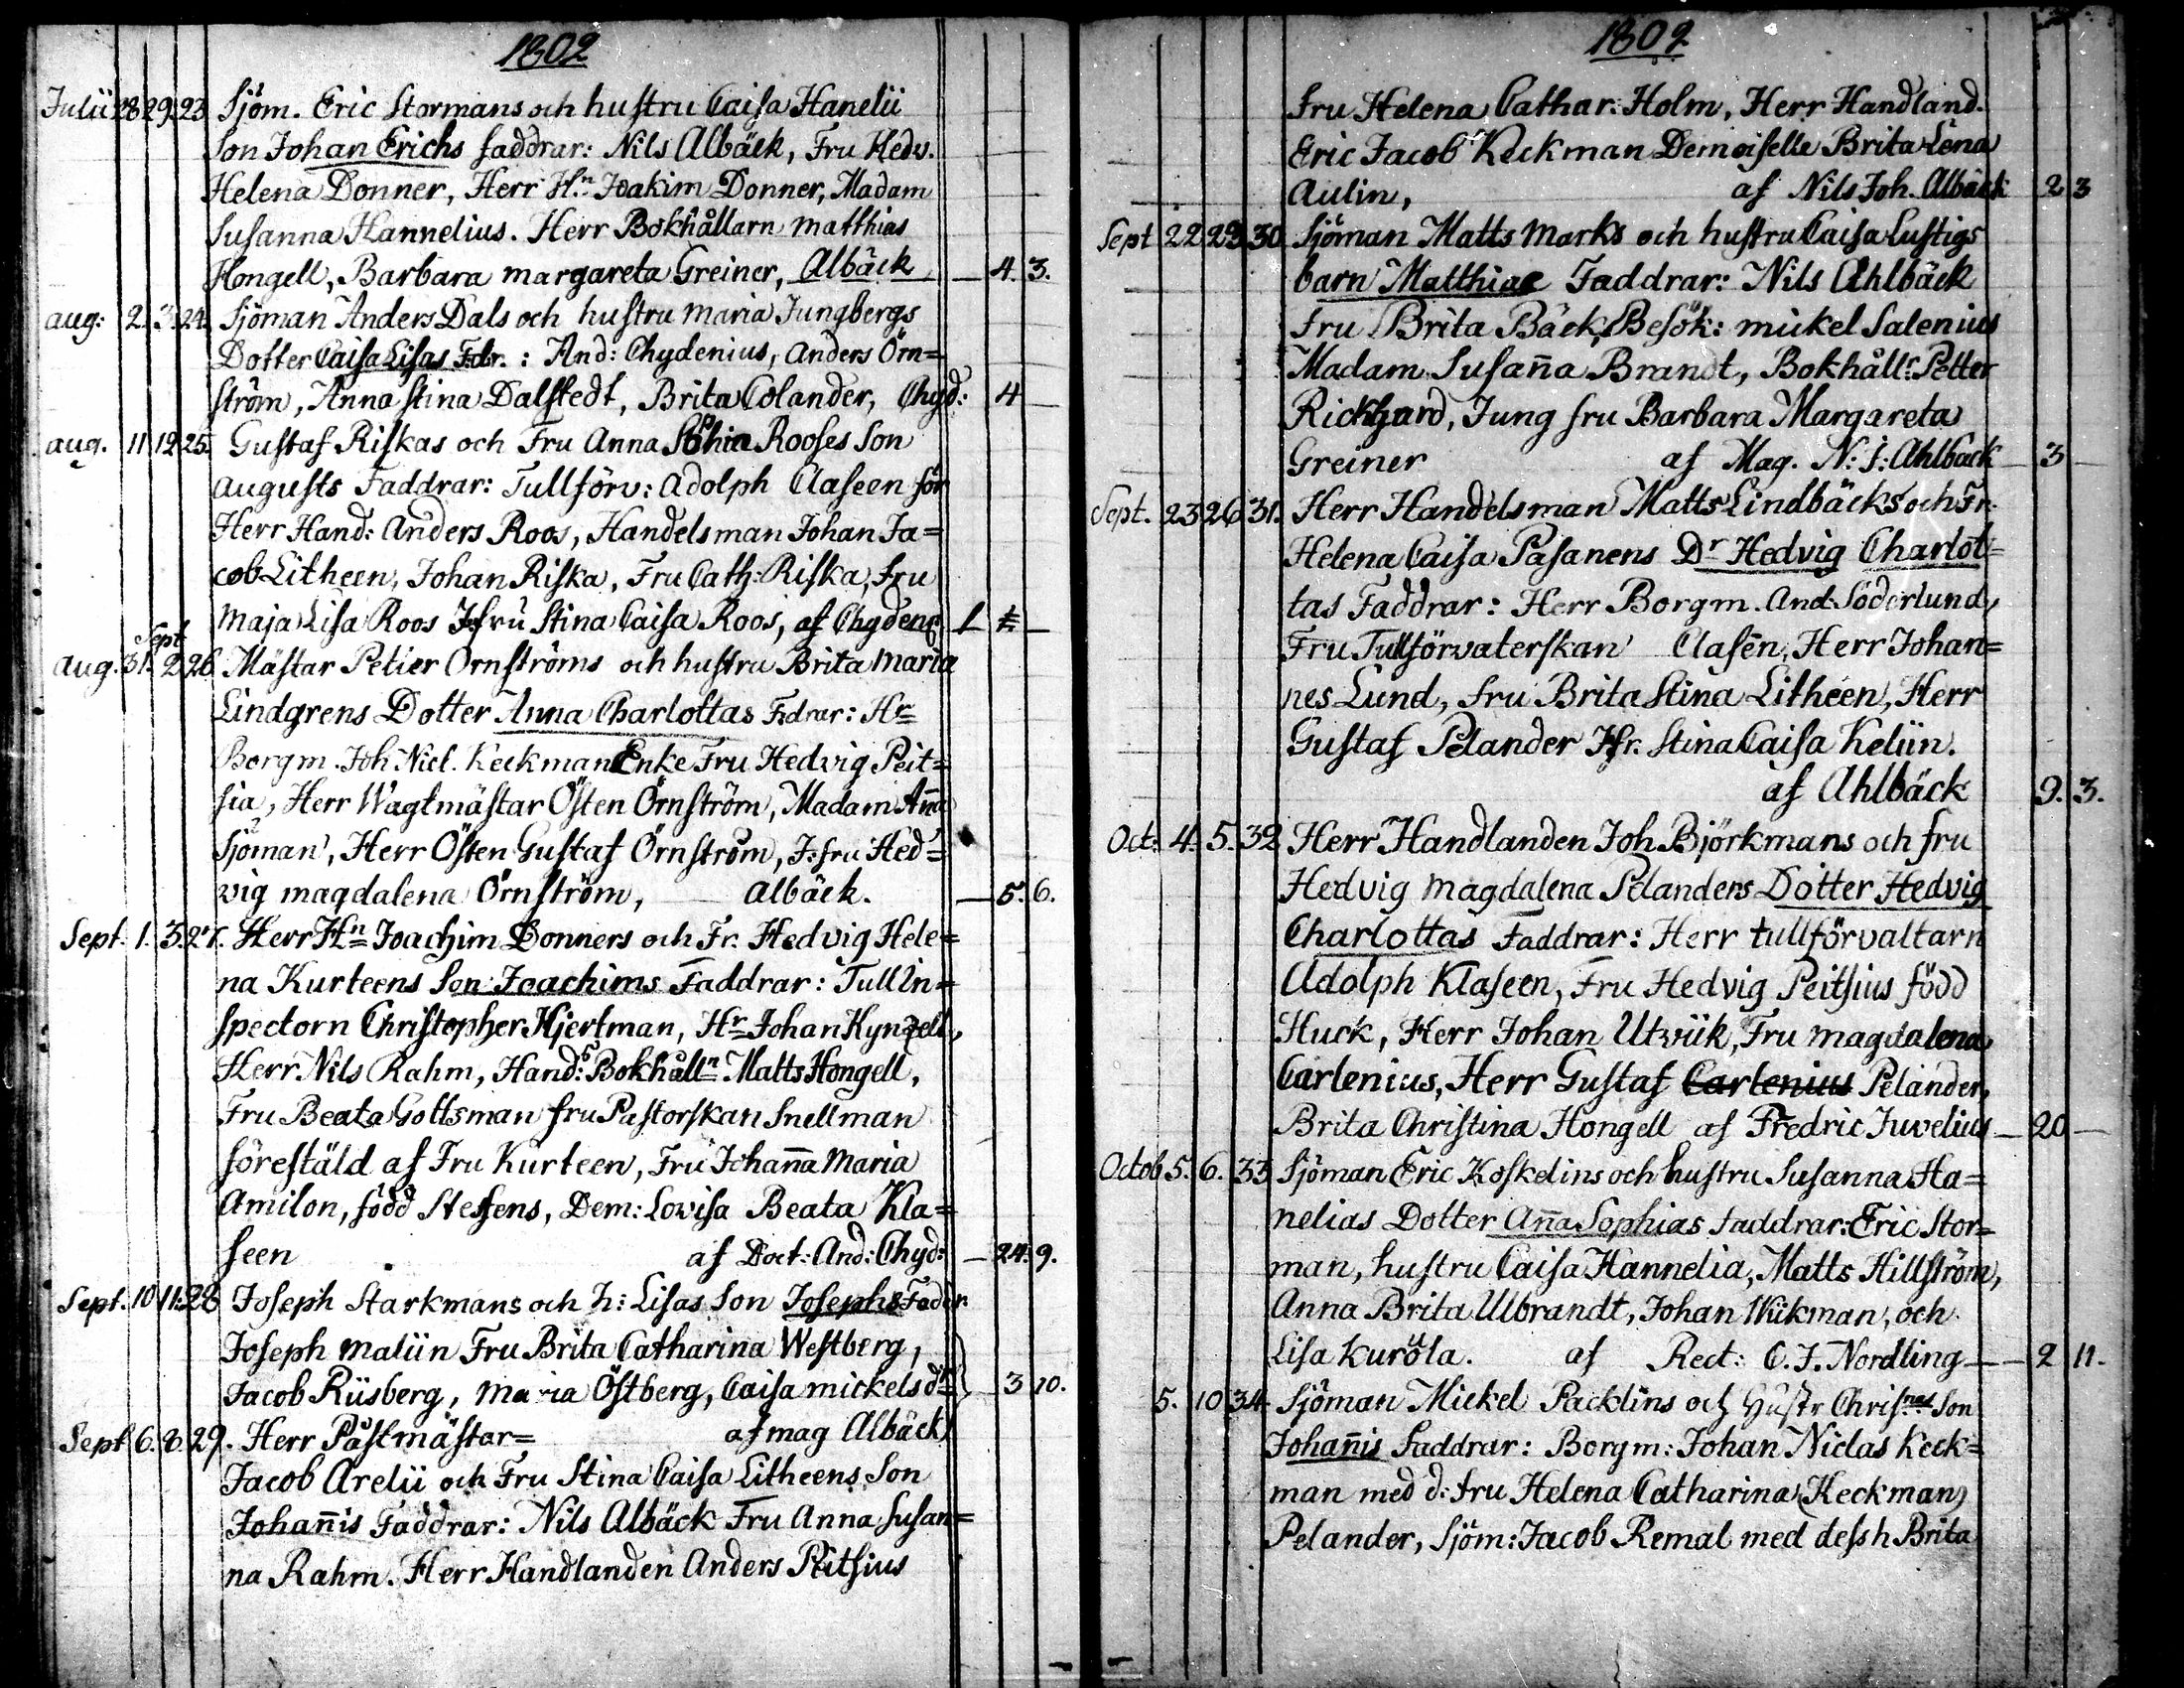 1802
Julii 28 29. 23 Sjöm. Eric Stormans och hustru Caisa Hanelii
Son Johan Erichs faddrar: Nils Albäck, Fru Hedv.
Helena Donner, Herr H:n Joakim Donner, Madam
Susanna Hannelius. Herr Bokhållarn Matthias
Hongell, Barbara margareta Greiner, Albäck — 4. 3.
aug: 2. 3. 24. Sjöman Anders Dals och hustru maria Jungbergs
Dotter Caisa Lisas Fdr. : And: Chydenius, Anders Örn=
ström, Anna Stina Dalstedt, Brita Colander, Chyd: 4 —
aug. 11 12 25. Gustaf Riskas och Fru Anna Sophia Rooses Son
augusts Faddrar: Tullförv: Adolph Claseen för
Herr Hand: Anders Roos, Handelsman Johan Ja=
cob Litheen, Johan Riska, Fru Cath: Riska, fru
Maja Lisa Roos Jfru Stina Caisa Roos, af Chyden:
aug. 31. Sept 2 26 Mästar Petter Örnströms och hustru Brita Maria
Lindgrens Dotter Anna Charlottas Fdrar: Hr
Borgm. Joh Nicl. Keckman Enke Fru Hedvig Peit=
sia, Herr Wagtmästar Östen Örnström, Madam Aña
Sjöman, Herr Östen Gustaf Örnström, J:fru Hed=
vig magdalena Örnström, albäck. — 5. 6.
Sept. 1. 3. 27. Herr Hn Joachim Donners och Fr. Hedvig Hele=
na Kurteens Son Joachims Faddrar: Tull In=
spectorn Christopher Hjertman, Hr Johan Kynzell,
Herr Nils Rahm, Hand:s Bokhålln Matts Hongell,
Fru Beata Gottsman fru Pastorskan Snellman
föreställd af Fru Kurteen, Fru Johaña Maria
Amilon, född Steffens, Dem: Lovisa Beata Kla=
seen af Doct: And: Chyd: — 24. 9.
Sept. 10 11. 28 Joseph Starkmans och h: Lisas Son Josephs Fadr
Joseph Maliin Fru Brita Catharina Westberg,
Jacob Riisberg, Maria Östberg, Caisa mickelsdr 3 10.
Sept 6. 8. 29. Herr Påstmästar= af mag Albäck
Jacob Arelii och Fru Stina Caisa Litheens Son
Johañis Faddrar: Nils Albäck Fru Anna Susan=
na Rahm. Herr Handlanden Anders Peitsius
1802
fru Helena Cathar: Holm, Herr Handland.
Eric Jacob Keckman Demoiselle Brita Lena
Aulin, af Nils Joh. Albäck 2 3
Sept 22 23 30 Sjöman Matts Marks och hustru Caisa Lustigs
barn Matthiae Faddrar: Nils Ahlbäck
fru Brita Bäck, Besök: mickel Salenius
Madam Susaña Brandt, Bokhåll:r Petter
Richard, Jungfru Barbara Margareta
Greiner af Mag. N: J: Ahlbäck 3 —
Sept. 23 26 31. Herr Handelsman Matts Lindbäcks och Fr.
Helena Caisa Pasanens Dr Hedvig Charlot=
tas Faddrar: Herr Borgm. And: Söderlund,
Fru Tullförvaterskan Clasen, Herr Johan=
nes Lund, fru Brita Stina Litheen, Herr
Gustaf Pelander Jfr. Stina Caisa Keliin.
af Ahlbäck 9. 3.
Oct: 4. 5. 32 Herr Handlanden Joh Björkmans och fru
Hedvig Magdalena Pelanders Dotter Hedvig
Charlottas Faddrar: Herr tullförvaltarn
Adolph Klaseen, Fru Hedvig Peitsius född
Huck, Herr Johan Utviik, Fru magdalena
Carlenius, Herr Gustaf Carlenius Pelander,
Brita Christina Hongell af Fredric Juvelius — 20 —
Octob 5. 6. 33 Sjöman Eric Koskelins och hustru Susanna Ha=
nelias Dotter Aña Sophias faddrar: Eric Stor=
man, hustru Caisa Hannelia, Matts Hillström,
Anna Brita Ulbrandt, Johan Wikman, och
Lisa Kurola. af Rect: C. J. Nordling — 2 11.
5. 10 34. Sjöman Mickel Packlins och Hustr Chris:nas Son
Johañis faddrar: Borgm: Johan Niclas Keck=
man med d: fru Helena Catharina Keckman
Pelander, Sjöm: Jacob Remal med dess h Brita